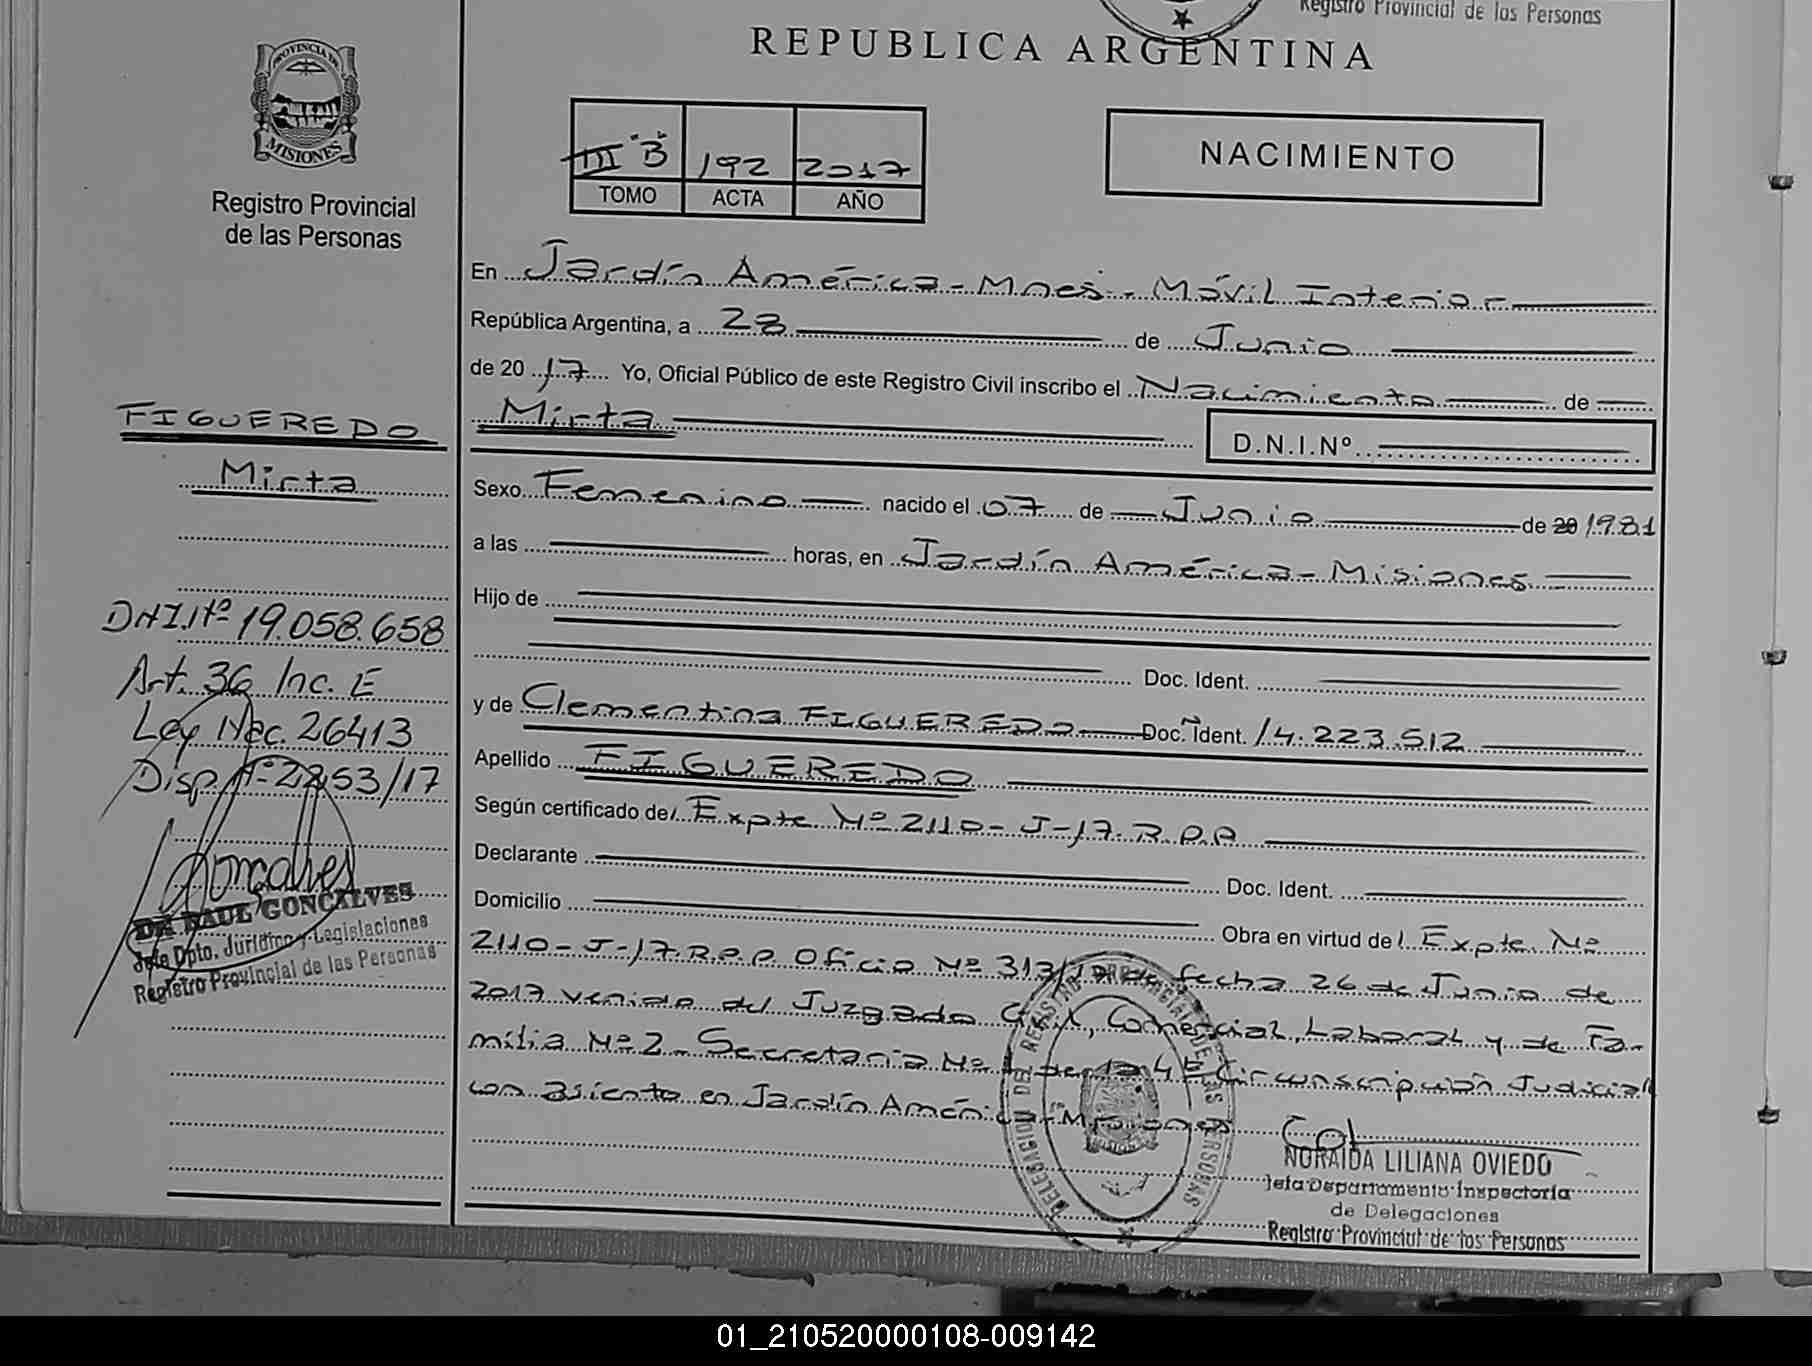 Registro Provincial de las Personas
REPUBLICA ARGENTINA
PROVINCIA DE
MISIONES
Registro Provincial
de las Personas
III "B" 192 2017
TOMO ACTA AÑO
NACIMIENTO
En Jardín América - Mnes. - Móvil Interior
República Argentina, a 28 de Junio
de 2017 Yo, Oficial Público de este Registro Civil inscribo el Nacimiento de
Mirta D.N.I.Nº
FIGUEREDO
Mirta
Sexo Femenino nacido el 07 de Junio de 20 1981
a las horas, en Jardín América - Misiones
Hijo de
DNI.Nº 19.058.658
Art. 36 Inc. E
Ley Nac. 26413
Disp. Nº 2253/17
Doc. Ident.
y de Clementina FIGUEREDO Doc. Ident. 14.223.512
Apellido FIGUEREDO
Según certificado del Expte Nº 2110-J-17.R.P.P.
Declarante Doc. Ident.
Domicilio Obra en virtud del Expte. Nº
2110-J-17.R.P.P. Oficio Nº 313/17 de fecha 26 de Junio de
2017 venido del Juzgado Civil, Comercial, Laboral y de Fa-
milia Nº 2 - Secretaria Nº 1 de la 4ta Circunscripción Judicial
con asiento en Jardín América - Misiones
Goncalves
DR RAUL GONCALVES
Jefe Dpto. Jurídico y Legislaciones
Registro Provincial de las Personas
DELEGACION DEL REGISTRO PROVINCIAL DE LAS PERSONAS
NORAIDA LILIANA OVIEDO
Jefa Departamento Inspectoría
de Delegaciones
Registro Provincial de las Personas
01_210520000108-009142